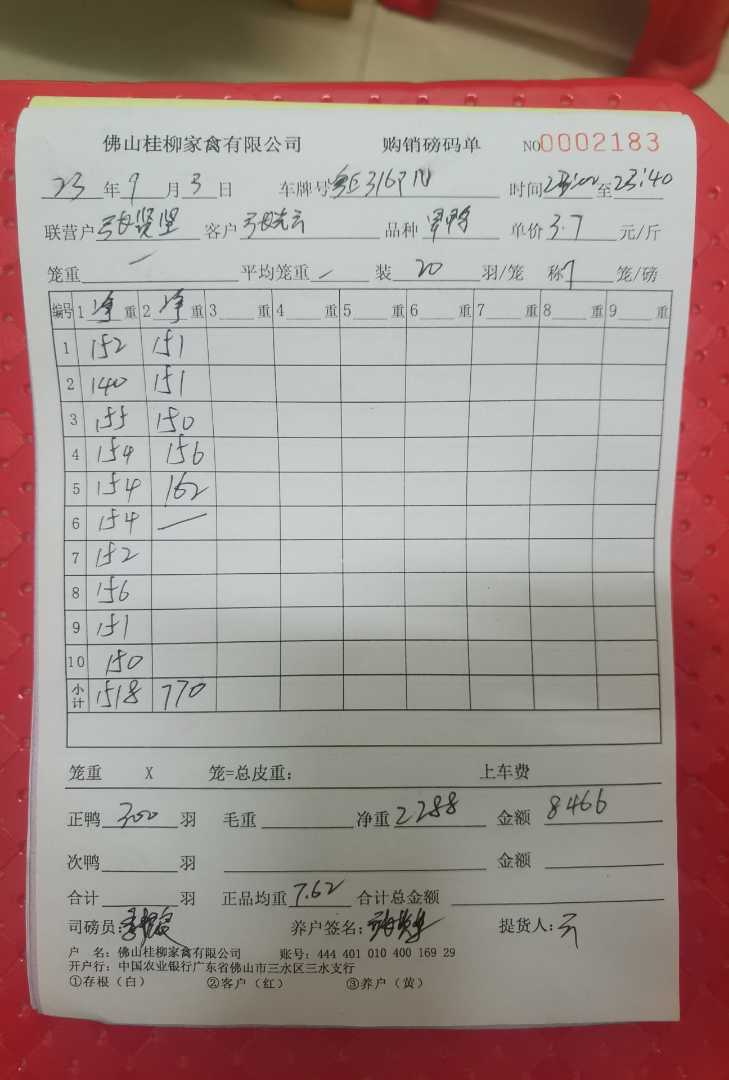 佛山桂柳家禽有限公司 购销磅码单 NO0002183
23年9月3日 车牌号 时间23:00至23:40
联营户 客户 品种 单价3.7元/斤
笼重 — 平均笼重 — 装20羽/笼 称1笼/磅
编号 1净重 2净重 3重 4重 5重 6重 7重 8重 9重
1 152 151
2 140 151
3 155 150
4 154 156
5 154 162
6 154 —
7 152
8 156
9 151
10 150
小计 1518 770
笼重 X 笼=总皮重: 上车费
正鸭300羽 毛重 净重2288 金额8466
次鸭羽 金额
合计羽 正品均重7.62 合计总金额
司磅员: 养户签名: 提货人:
户 名: 佛山桂柳家禽有限公司 账号: 444 401 010 400 169 29
开户行: 中国农业银行广东省佛山市三水区三水支行
①存根(白) ②客户(红) ③养户(黄)